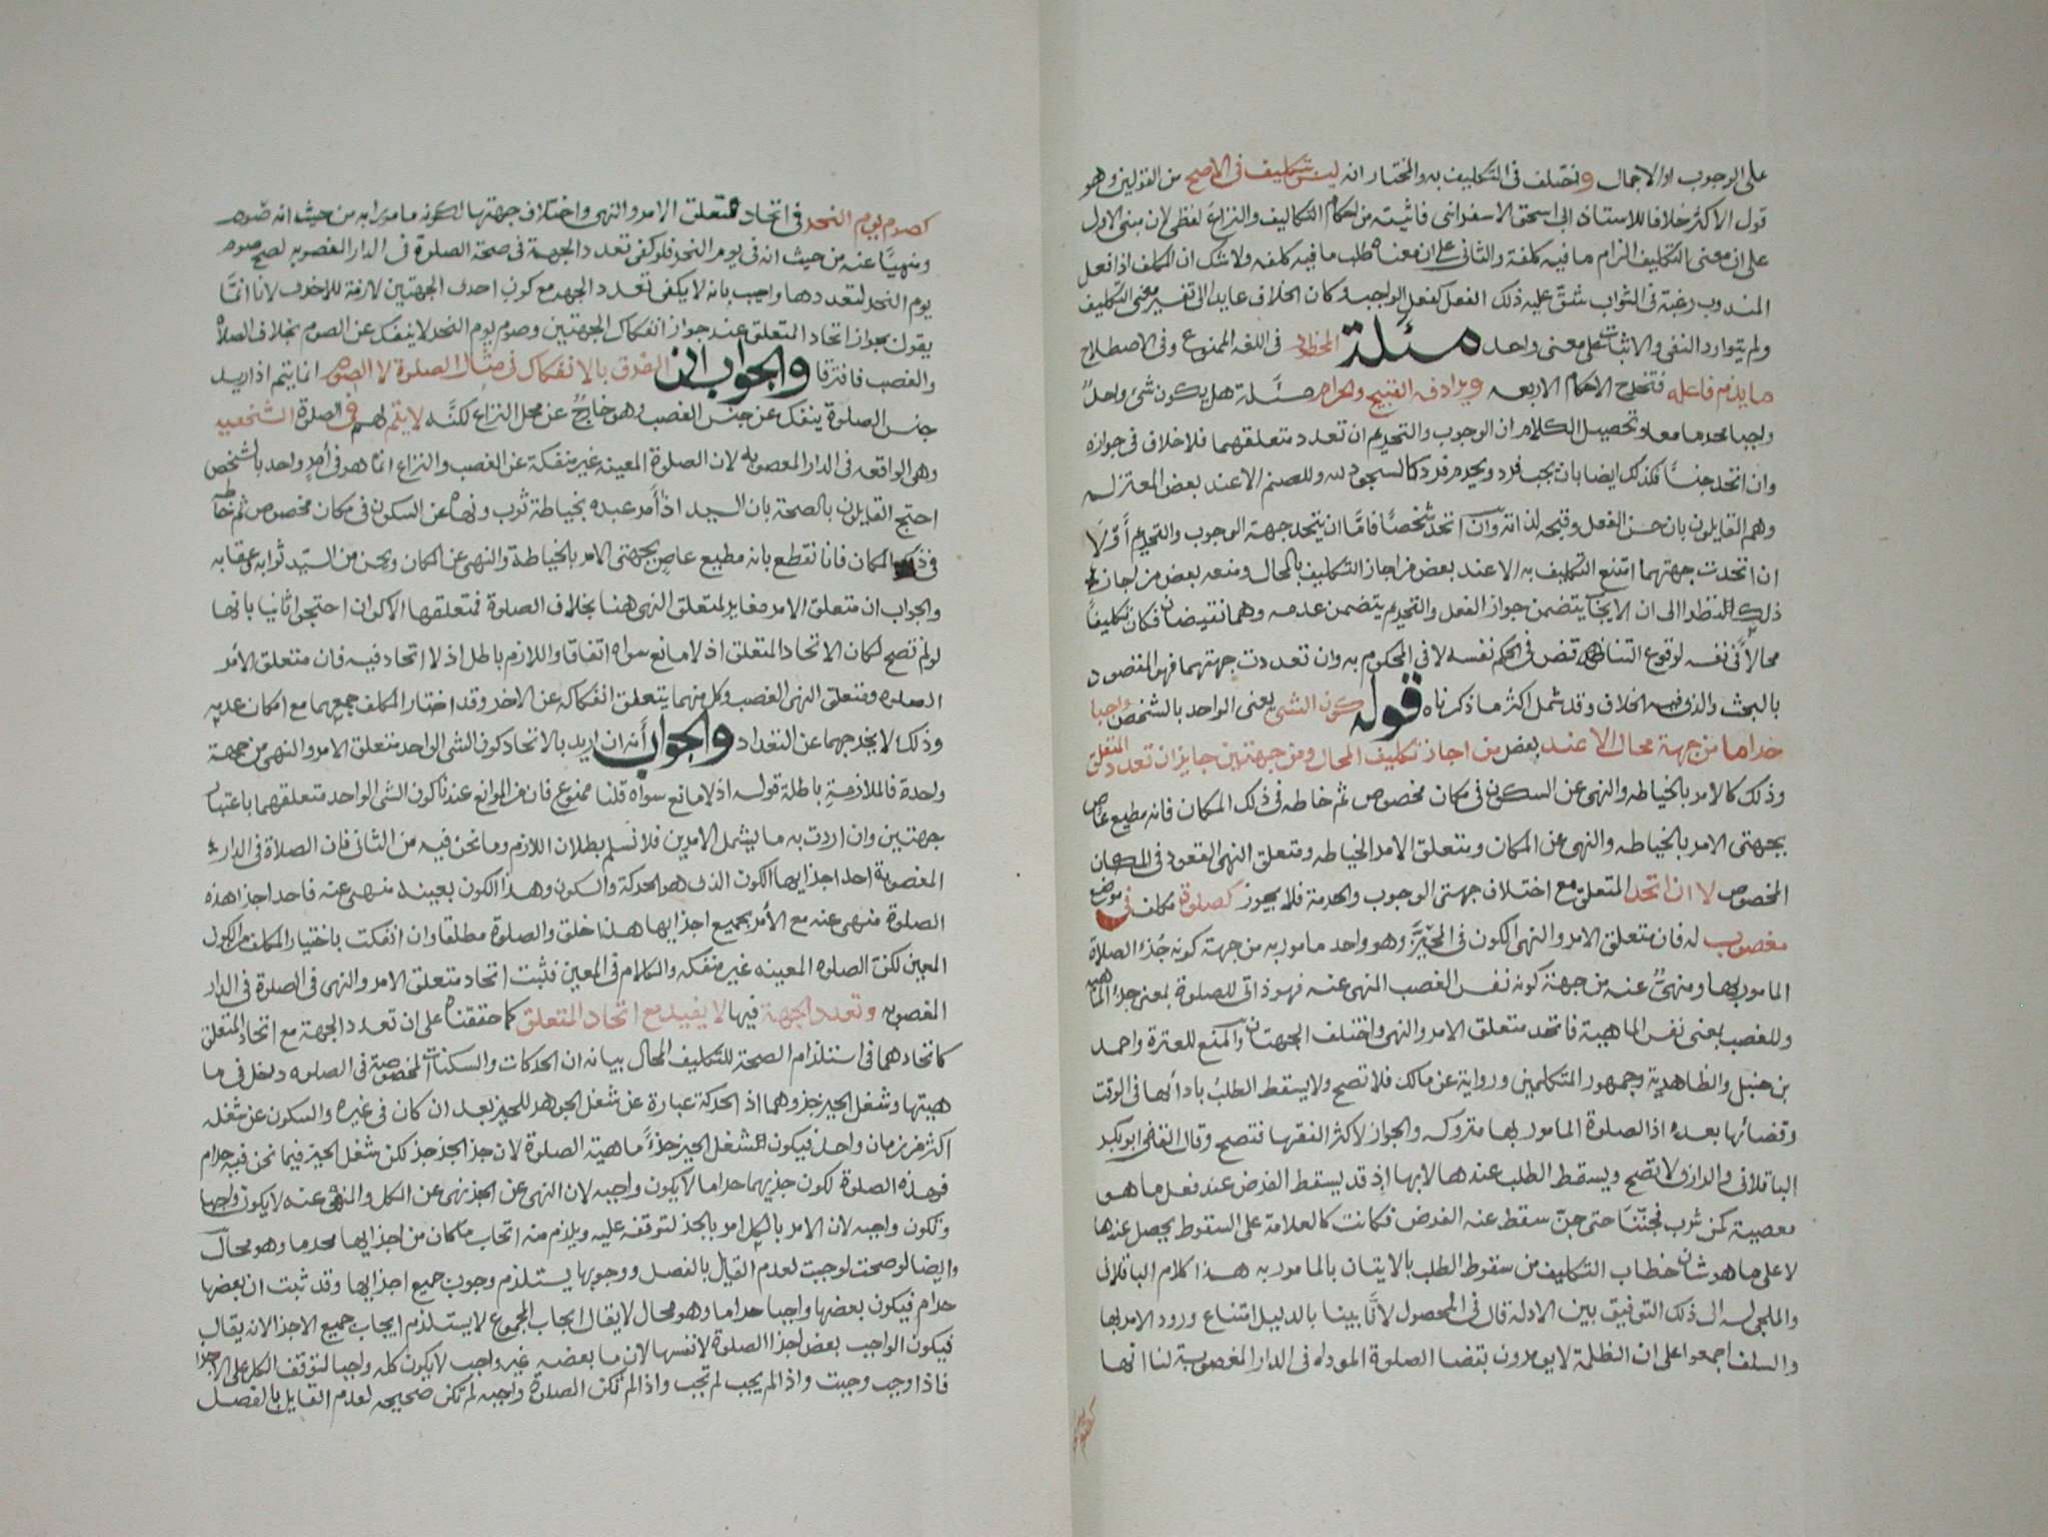 على الوجوب او الاجمال واختلف في التكليف به والمختار انه ليس بتكليف في الاصح من القولين وهو
قول الاكثر خلافا للاستاذ ابى اسحق الاسفراني فاثبته من احكام التكاليف والنزاع لفظي لان مبنى الاول
على ان معنى التكليف الزام ما فيه كلفة والثاني على ان معناه طلب ما فيه كلفه ولا شك ان المكلف اذا فعل
المندوب رغبة في الثواب شق عليه ذلك الفعل كفعل الواجب فكان الخلاف عايدا الى تفسير معنى التكليف
ولم يتوارد النفي والاثبات على معنى واحد مسئلة المحظور في اللغه الممنوع وفي الاصطلاح
ما يذم فاعله فتخرج الاحكام الاربعه ويرادفه القبيح والحرام مسئلة هل يكون شئ واحد
واجبا محرما معا وتحصيل الكلام ان الوجوب والتحريم ان تعدد متعلقهما فلا خلاف في جوازه
وان اتحد جنسا فكذلك ايضا بان يجب فرد ويحرم فرد كالسجود لله وللصنم الا عند بعض المعتزله
وهم القايلون بان حسن الفعل وقبحه لذاته وان اتحد شخصا فاما ان يتحد جهة الوجوب والتحريم أو لا
ان اتحدت جهتهما امتنع التكليف به الا عند بعض من اجاز التكليف بالمحال ومنعه بعض من اجاز
ذلك النظر الى ان الايجاب يتضمن جواز الفعل والتحريم يتضمن عدمه وهما نقيضان فكان تكليفا
محالا في نفسه لوقوع التناقض في الحكم نفسه لا في المحكوم به وان تعددت جهتهما فهو المقصود
بالبحث والذي فيه الخلاف وقد شمل اكثر ما ذكرناه قوله كون الشئ يعني الواحد بالشخص واجبا
حراما من جهة محال الا عند بعض من اجاز تكليف المحال ومن جهتين جايز ان تعدد المتعلق
وذلك كالامر بالخياطه والنهي عن السكون في مكان مخصوص ثم خاطه في ذلك المكان فانه مطيع عاص
بجهتي الامر بالخياطه والنهي عن المكان ومتعلق الامر الخياطه ومتعلق النهى القعود في المكان
المخصوص لا ان اتحد المتعلق مع اختلاف جهتى الوجوب والحرمة فلا يجوز كصلوة مكلف في موضع
مغصوب له فان متعلق الامر والنهى الكون في الحيز وهو واحد مامور به من جهة كونه جزء الصلاة
المامور بها ومنهى عنه من جهة كونه نفس الغصب المنهى عنه فهو ذاتي للصلوة بمعنى جزء الماهيه
وللغصب بمعنى نفس الماهية فاتحد متعلق الامر والنهى واختلف الجهتان والمنع للعترة واحمد
بن حنبل والظاهرية وجمهور المتكلمين ورواية عن مالك فلا تصح ولا يسقط الطلب بادائها في الوقت
وقضائها بعده اذ الصلوة المامور بها متروكه والجواز لاكثر الفقها فتصح وقال القاضى ابو بكر
الباقلاني والرازي لا تصح ويسقط الطلب عندها لا بها اذ قد يسقط الفرض عند فعل ما هو
معصية كمن شرب مجننا حتى جن سقط عنه الفرض فكانت كالعلامة على السقوط يحصل عندها
لا على ما هو شان خطاب التكليف من سقوط الطلب بالايتان بالمامور به هذا كلام الباقلاني
والملجى له الى ذلك التوفيق بين الادلة قال في المحصول لانا بينا بالدليل امتناع ورود الامر بها
والسلف اجمعوا على ان الظلمة لا يومرون بقضا الصلوة الموداه في الدار المغصوبة لنا انها
كصوم
كصوم يوم النحر في اتحاد متعلق الامر والنهى واختلاف جهتها لكونه مامورا به من حيث انه صوم
ومنهيا عنه من حيث انه في يوم النحر فلو كفى تعدد الجهة في صحة الصلوة في الدار الغصوبه لصح صوم
يوم النحر لتعددها واجيب بانه لا يكفى تعدد الجهه مع كون احدى الجهتين لازمة للاخرى لانا انما
يقول بجواز اتحاد المتعلق عند جواز انفكاك الجهتين وصوم يوم النحر لا ينفك عن الصوم بخلاف الصلاه
والغصب فافترقا والجواب ان الفرق بالانفكاك في مثال الصلوة لا الصوم انما يتم اذا اريد
جنس الصلوة ينفك عن جنس الغصب وهو خارج عن محل النزاع لكنه لا يتم لهم في الصلوة الشخصيه
وهي الواقعه في الدار المغصوبه لان الصلوة المعينه غير منفكة عن الغصب والنزاع انما هو في أمر واحد بالشخص
احتج القايلون بالصحة بان السيد اذا أمر عبده بخياطة ثوب ونهاه عن السكون في مكان مخصوص ثم خاطه
في ذلك المكان فانا نقطع بانه مطيع عاص بجهتى الامر بالخياطة والنهى عن المكان ويحسن من السيد ثوابه وعقابه
والجواب ان متعلق الامر مغاير لمتعلق النهى هنا بخلاف الصلوة فمتعلقها الاكوان احتجوا ثانيا بانها
لو لم تصح لكان الاتحاد المتعلق اذ لا مانع سواه اتفاقا واللازم باطل اذ لا اتحاد فيه فان متعلق الأمر
الصلوه ومتعلق النهى الغصب وكل منهما يتعلق انفكاكه عن الاخر وقد اختار المكلف جمعهما مع امكان عدمه
وذلك لا يخرجهما عن التعداد والجواب أنه ان اريد بالاتحاد كون الشى الواحد متعلق الامر والنهى من جهة
واحدة فالملازمة باطلة قوله اذ لا مانع سواه قلنا ممنوع فان من الموانع عندنا كون الشى الواحد متعلقهما باعتبار
جهتين وان اردت به ما يشمل الامرين فلا نسلم بطلان اللازم وما نحن فيه من الثاني فان الصلاة في الدار
المغصوبة احد اجزايها الكون الذي هو الحركة والسكون وهذا الكون بعينه منهى عنه فاحد اجزا هذه
الصلوة منهى عنه مع الأمر بجميع اجزايها هذا خلف والصلوة مطلقا وان انفكت باختيار المكلف من الكون
المعين لكن الصلوه المعينه غير منفكه والكلام في المعين فثبت اتحاد متعلق الامر والنهى في الصلوة في الدار
المغصوبه وتعدد الجهة فيها لا يفيد مع اتحاد المتعلق كما حققناه على ان تعدد الجهة مع اتحاد المتعلق
كاتحادهما في استلزام الصحة للتكليف المحال بيانه ان الحركات والسكنات المخصوصة في الصلوه دخل في ما
هيتها وشغل الحيز جزوهما اذ الحركة عبارة عن شغل الجوهر للحيز بعد ان كان في غيره والسكون عن شغله
اكثر من زمان واحد فيكون شغل الحيز جزءا ماهية الصلوة لان جز الجز جز لكن شغل الحيز فيما نحن فيه حرام
فهذه الصلوة لكون جزيهما حراما لا يكون واجبه لان النهى عن الجز نهى عن الكل والمنهى عنه لا يكون واجبا
وتكون واجبه لان الامر بالكل امر بالجز لتوقفه عليه ويلزم منه ايجاب ما كان من اجزايها محرما وهو محال
وايضا لو صحت لوجبت لعدم القايل بالفصل ووجوبها يستلزم وجوب جميع اجزايها وقد ثبت ان بعضها
حرام فيكون بعضها واجبا حراما وهو محال لا يقال ايجاب المجموع لا يستلزم ايجاب جميع الاجزا لانه يقال
فيكون الواجب بعض اجزا الصلوة لا نفسها لان ما بعضه غير واجب لا يكون كله واجبا لتوقف الكل على الاجزا
فاذا وجب وجبت واذا لم يجب لم تجب واذا لم تكن الصلوة واجبه لم تكن صحيحه لعدم القايل بالفصل